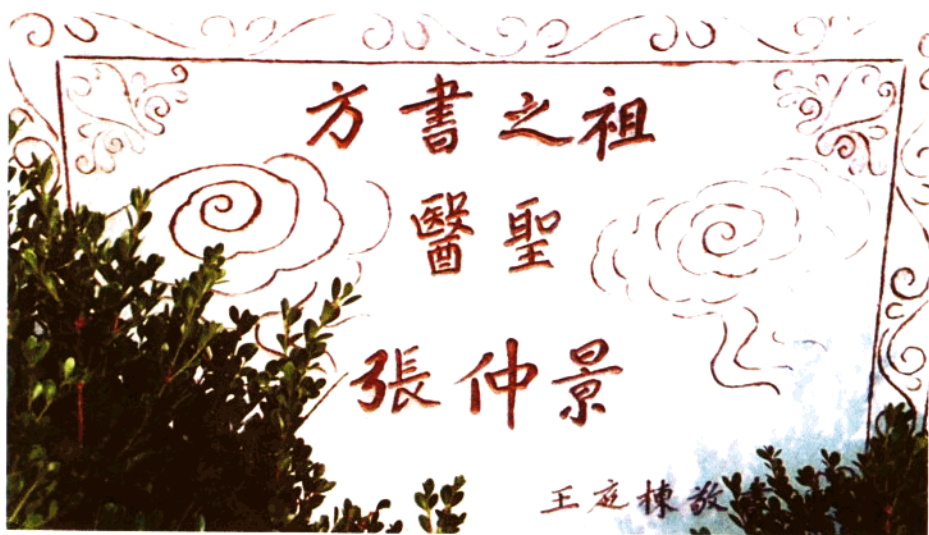 方書之祖
醫聖
張仲景
王定棟敬